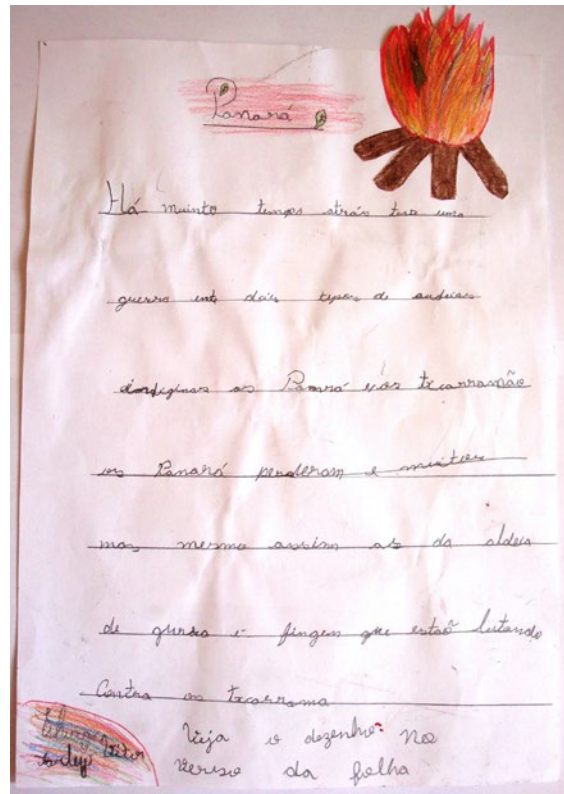 Panará
Há muinto tempos atrás teve uma
guerra ente dois tipos de audeias
indiginas os Panará e os txcarramãe
os Panará perderam e muitos
mas mesmo assim as da aldeia
de gurra e fingem que estaõ lutando
Contra os txcarrama
Veja o dezenho: No
Verso da folha
Vitor